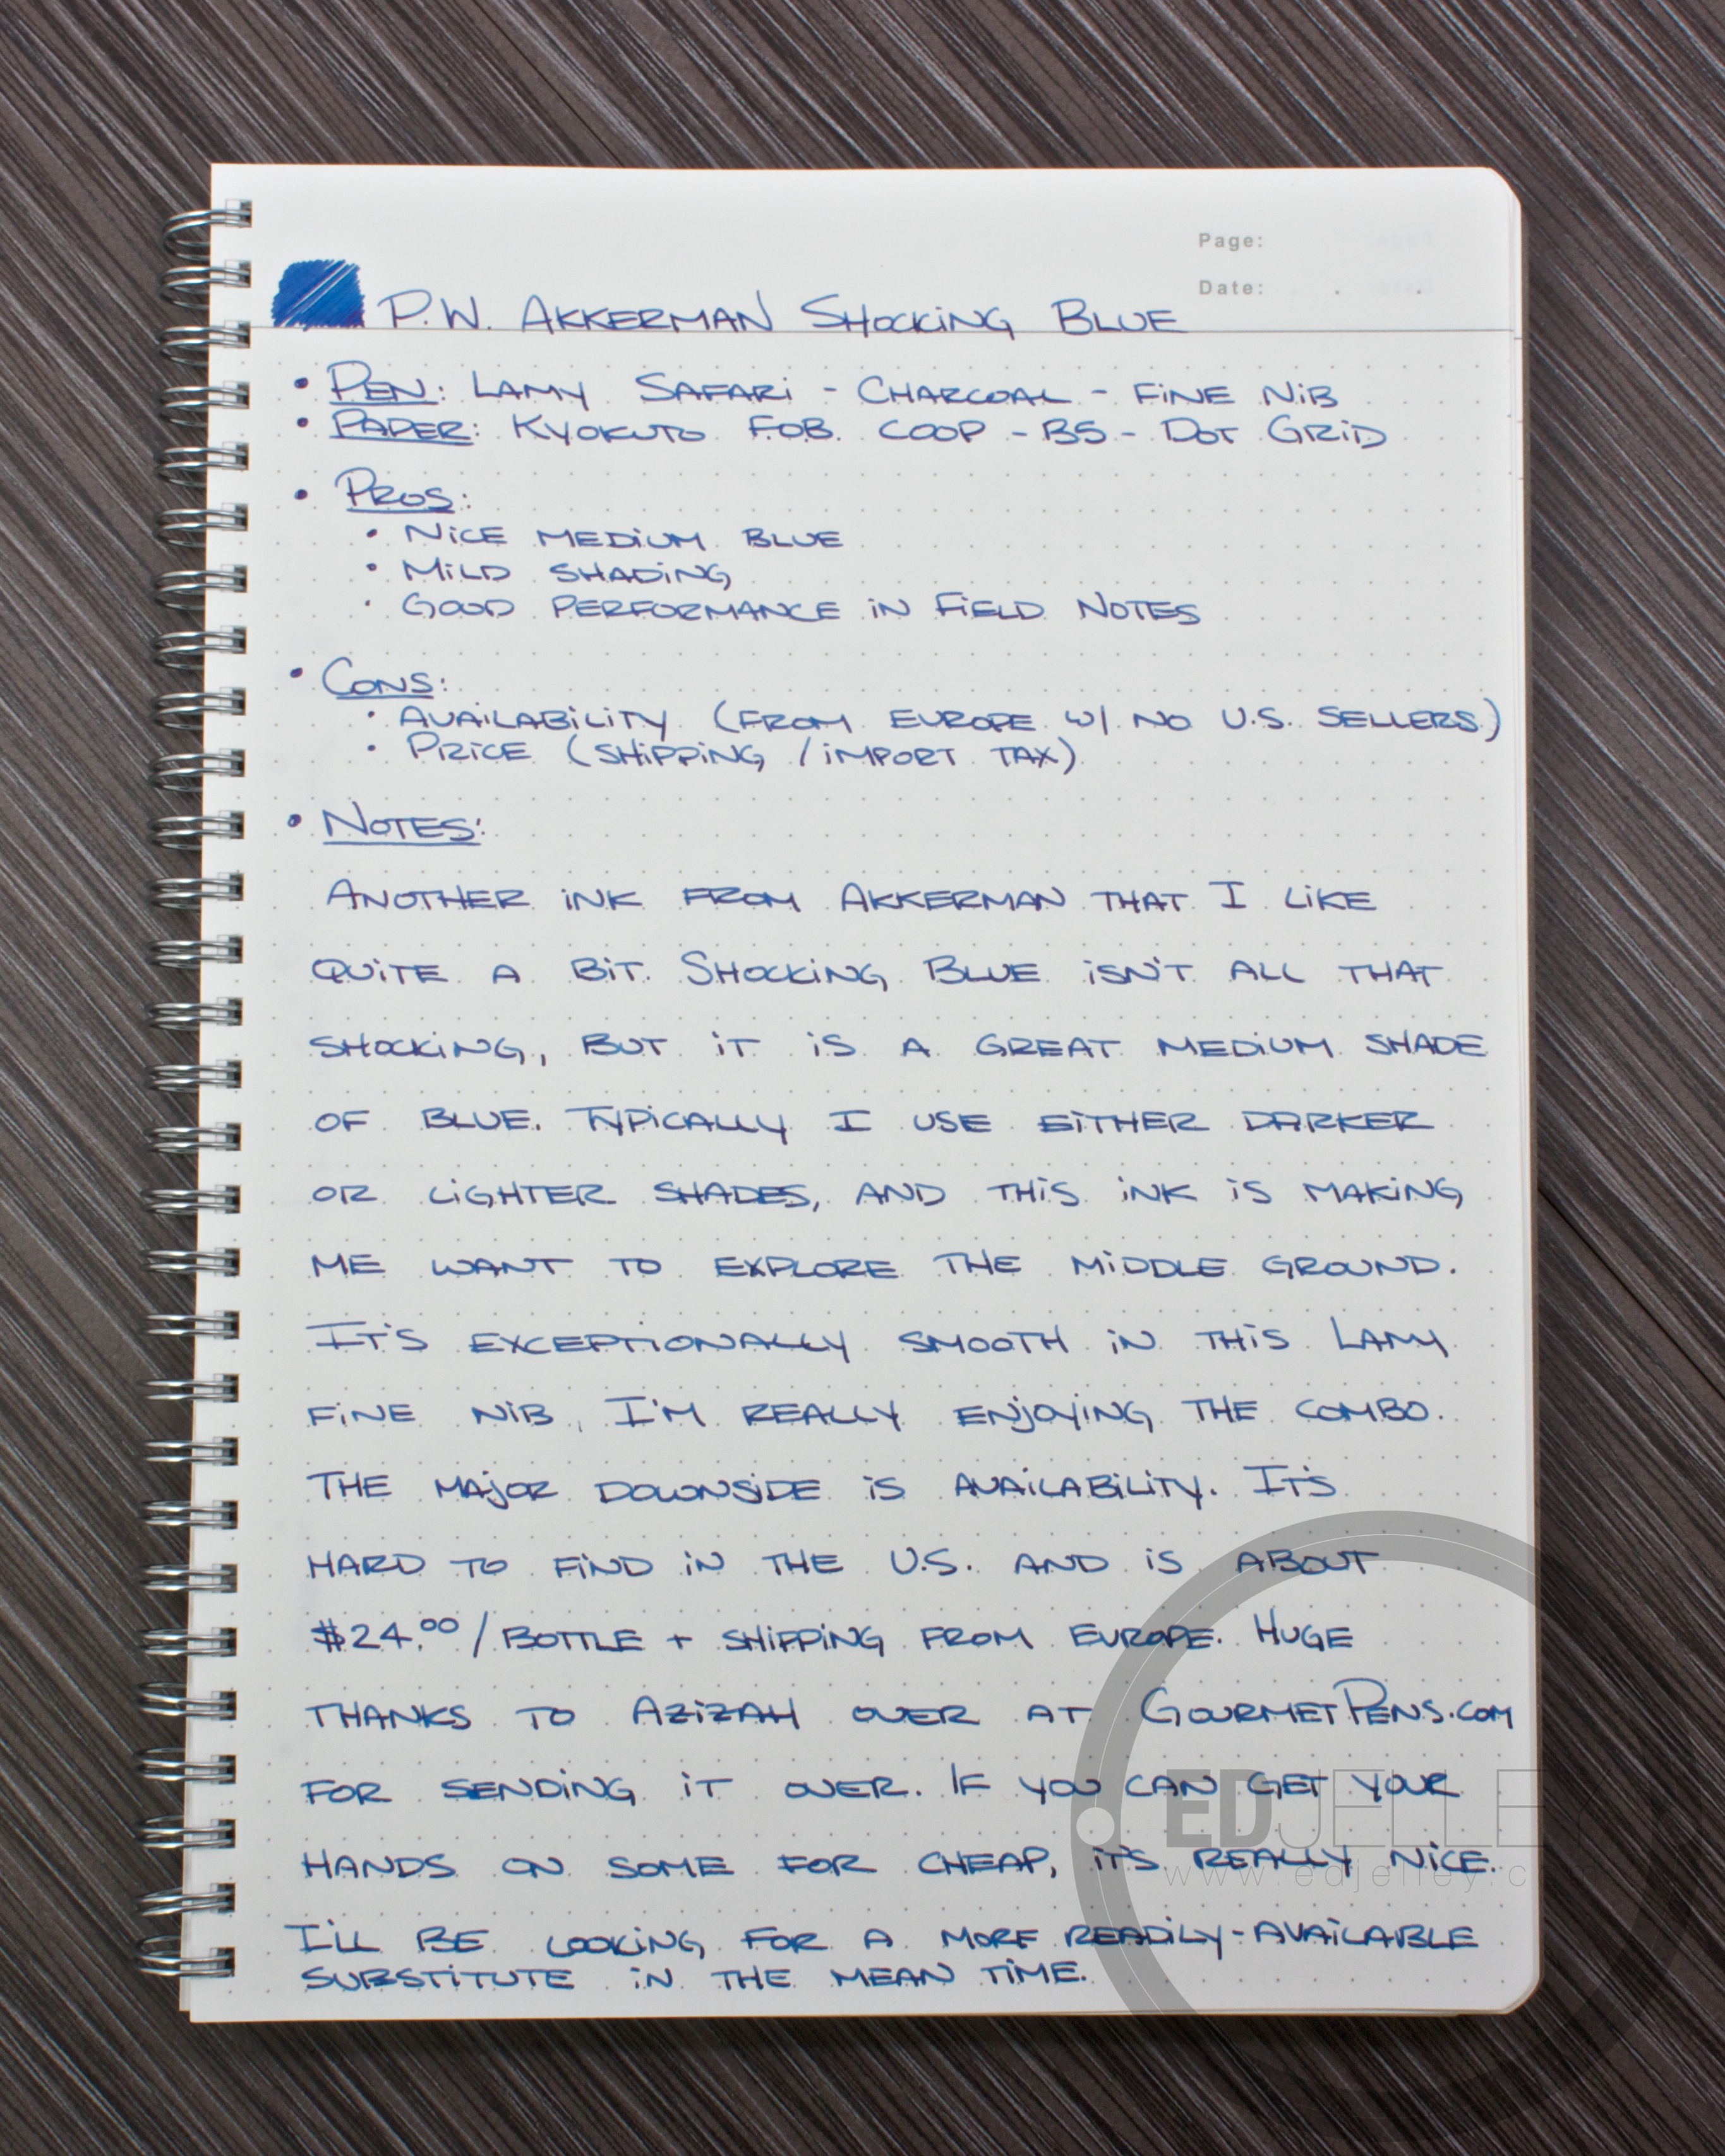 Page:
Date: . .
P.W. AKKERMAN SHOCKING BLUE
• PEN: LAMY SAFARI - CHARCOAL - FINE NIB
• PAPER: KYOKUTO F.O.B. COOP - B5 - DOT GRID
• PROS:
• NICE MEDIUM BLUE
• MILD SHADING
• GOOD PERFORMANCE IN FIELD NOTES
• CONS:
• AVAILABILITY (FROM EUROPE W/ NO U.S. SELLERS)
• PRICE (SHIPPING / IMPORT TAX)
• NOTES:
ANOTHER INK FROM AKKERMAN THAT I LIKE
QUITE A BIT. SHOCKING BLUE ISN'T ALL THAT
SHOCKING, BUT IT IS A GREAT MEDIUM SHADE
OF BLUE. TYPICALLY I USE EITHER DARKER
OR LIGHTER SHADES, AND THIS INK IS MAKING
ME WANT TO EXPLORE THE MIDDLE GROUND.
IT'S EXCEPTIONALLY SMOOTH IN THIS LAMY
FINE NIB, I'M REALLY ENJOYING THE COMBO.
THE MAJOR DOWNSIDE IS AVAILABILITY. IT'S
HARD TO FIND IN THE U.S. AND IS ABOUT
$24.00 / BOTTLE + SHIPPING FROM EUROPE. HUGE
THANKS TO AZIZAH OVER AT GOURMETPENS.COM
FOR SENDING IT OVER. IF YOU CAN GET YOUR
HANDS ON SOME FOR CHEAP, IT'S REALLY NICE.
I'LL BE LOOKING FOR A MORE READILY-AVAILABLE
SUBSTITUTE IN THE MEAN TIME.
EDJELLEY
www.edjelley.c